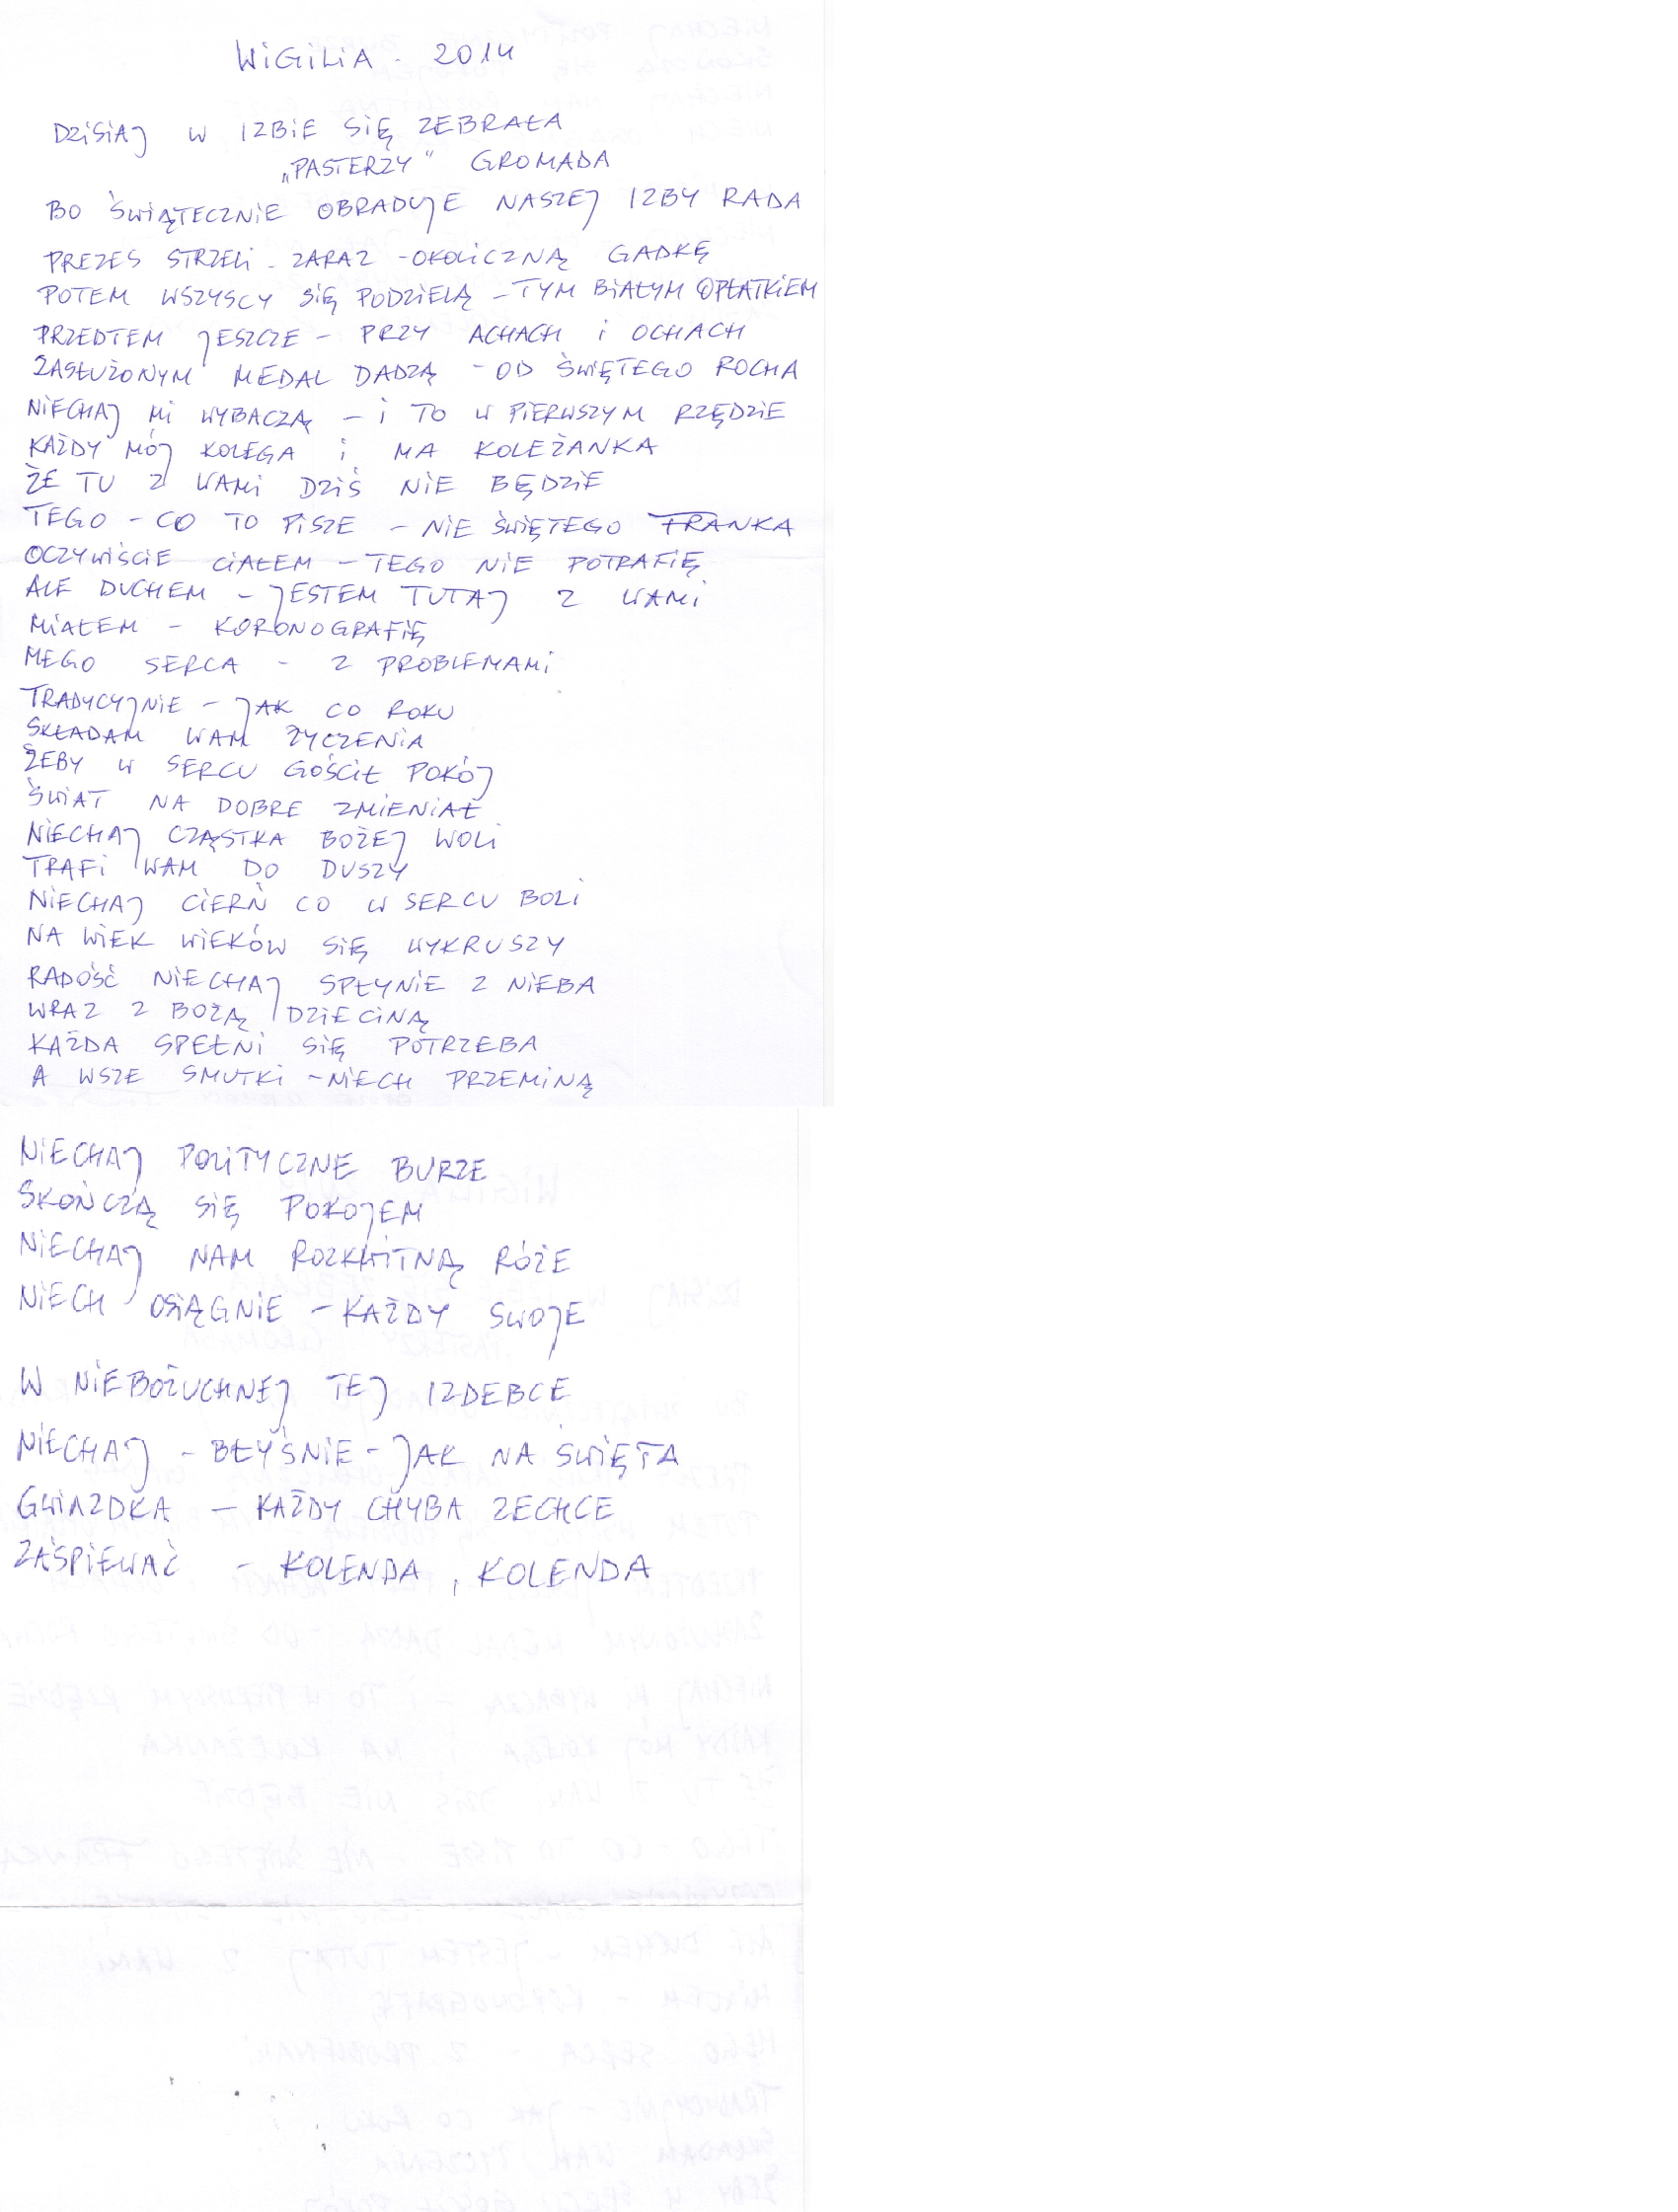 WiGiLiA - 2014
DZiSiAJ W IZBiE SiĘ ZEBRAŁA
„PASTERZY" GROMADA
BO ŚWiĄTECZNiE OBRADUJE NASZEJ IZBY RADA
PREZES STRZELi - ZARAZ - OKOLiCZNĄ GADKĘ
POTEM WSZYSCY SiĘ PODZiELĄ - TYM BiAŁYM OPŁATKiEM
PRZEDTEM JESZCZE - PRZY ACHACH i OCHACH
ZASŁUŻONYM MEDAL DADZĄ - OD ŚWiĘTEGO ROCHA
NiECHAJ Mi WYBACZĄ - i TO W PiERWSZYM RZĘDZiE
KAŻDY MÓJ KOLEGA i MA KOLEŻANKA
ŻE TU Z WAMi DZiŚ NiE BĘDZiE
TEGO - CO TO PiSZE - NiE ŚWiĘTEGO FRANKA
OCZYWiŚCiE CiAŁEM - TEGO NiE POTRAFiĘ
ALE DUCHEM - JESTEM TUTAJ Z WAMi
MiAŁEM - KORONOGRAFiĘ
MEGO SERCA - Z PROBLEMAMi
TRADYCYJNiE - JAK CO ROKU
SKŁADAM WAM ŻYCZENiA
ŻEBY W SERCU GOŚCiŁ POKÓJ
ŚWiAT NA DOBRE ZMiENiAŁ
NiECHAJ CZĄSTKA BOŻEJ WOLi
TRAFi WAM DO DUSZY
NiECHAJ CiERŃ CO W SERCU BOLi
NA WiEK WiEKÓW SiĘ WYKRUSZY
RADOŚĆ NiECHAJ SPŁYNiE Z NiEBA
WRAZ Z BOŻĄ DZiECiNĄ
KAŻDA SPEŁNi SiĘ POTRZEBA
A WSZE SMUTKi - NiECH PRZEMiNĄ
NiECHAJ POLiTYCZNE BURZE
SKOŃCZĄ SiĘ POKOJEM
NiECHAJ NAM ROZKWiTNĄ RÓŻE
NiECH OSiĄGNiE - KAŻDY SWOJE
W NiEBOŻUCHNEJ TEJ IZDEBCE
NiECHAJ - BŁYŚNiE - JAK NA ŚWiĘTA
GWiAZDKA - KAŻDY CHYBA ZECHCE
ZAŚPiEWAĆ - KOLENDA, KOLENDA